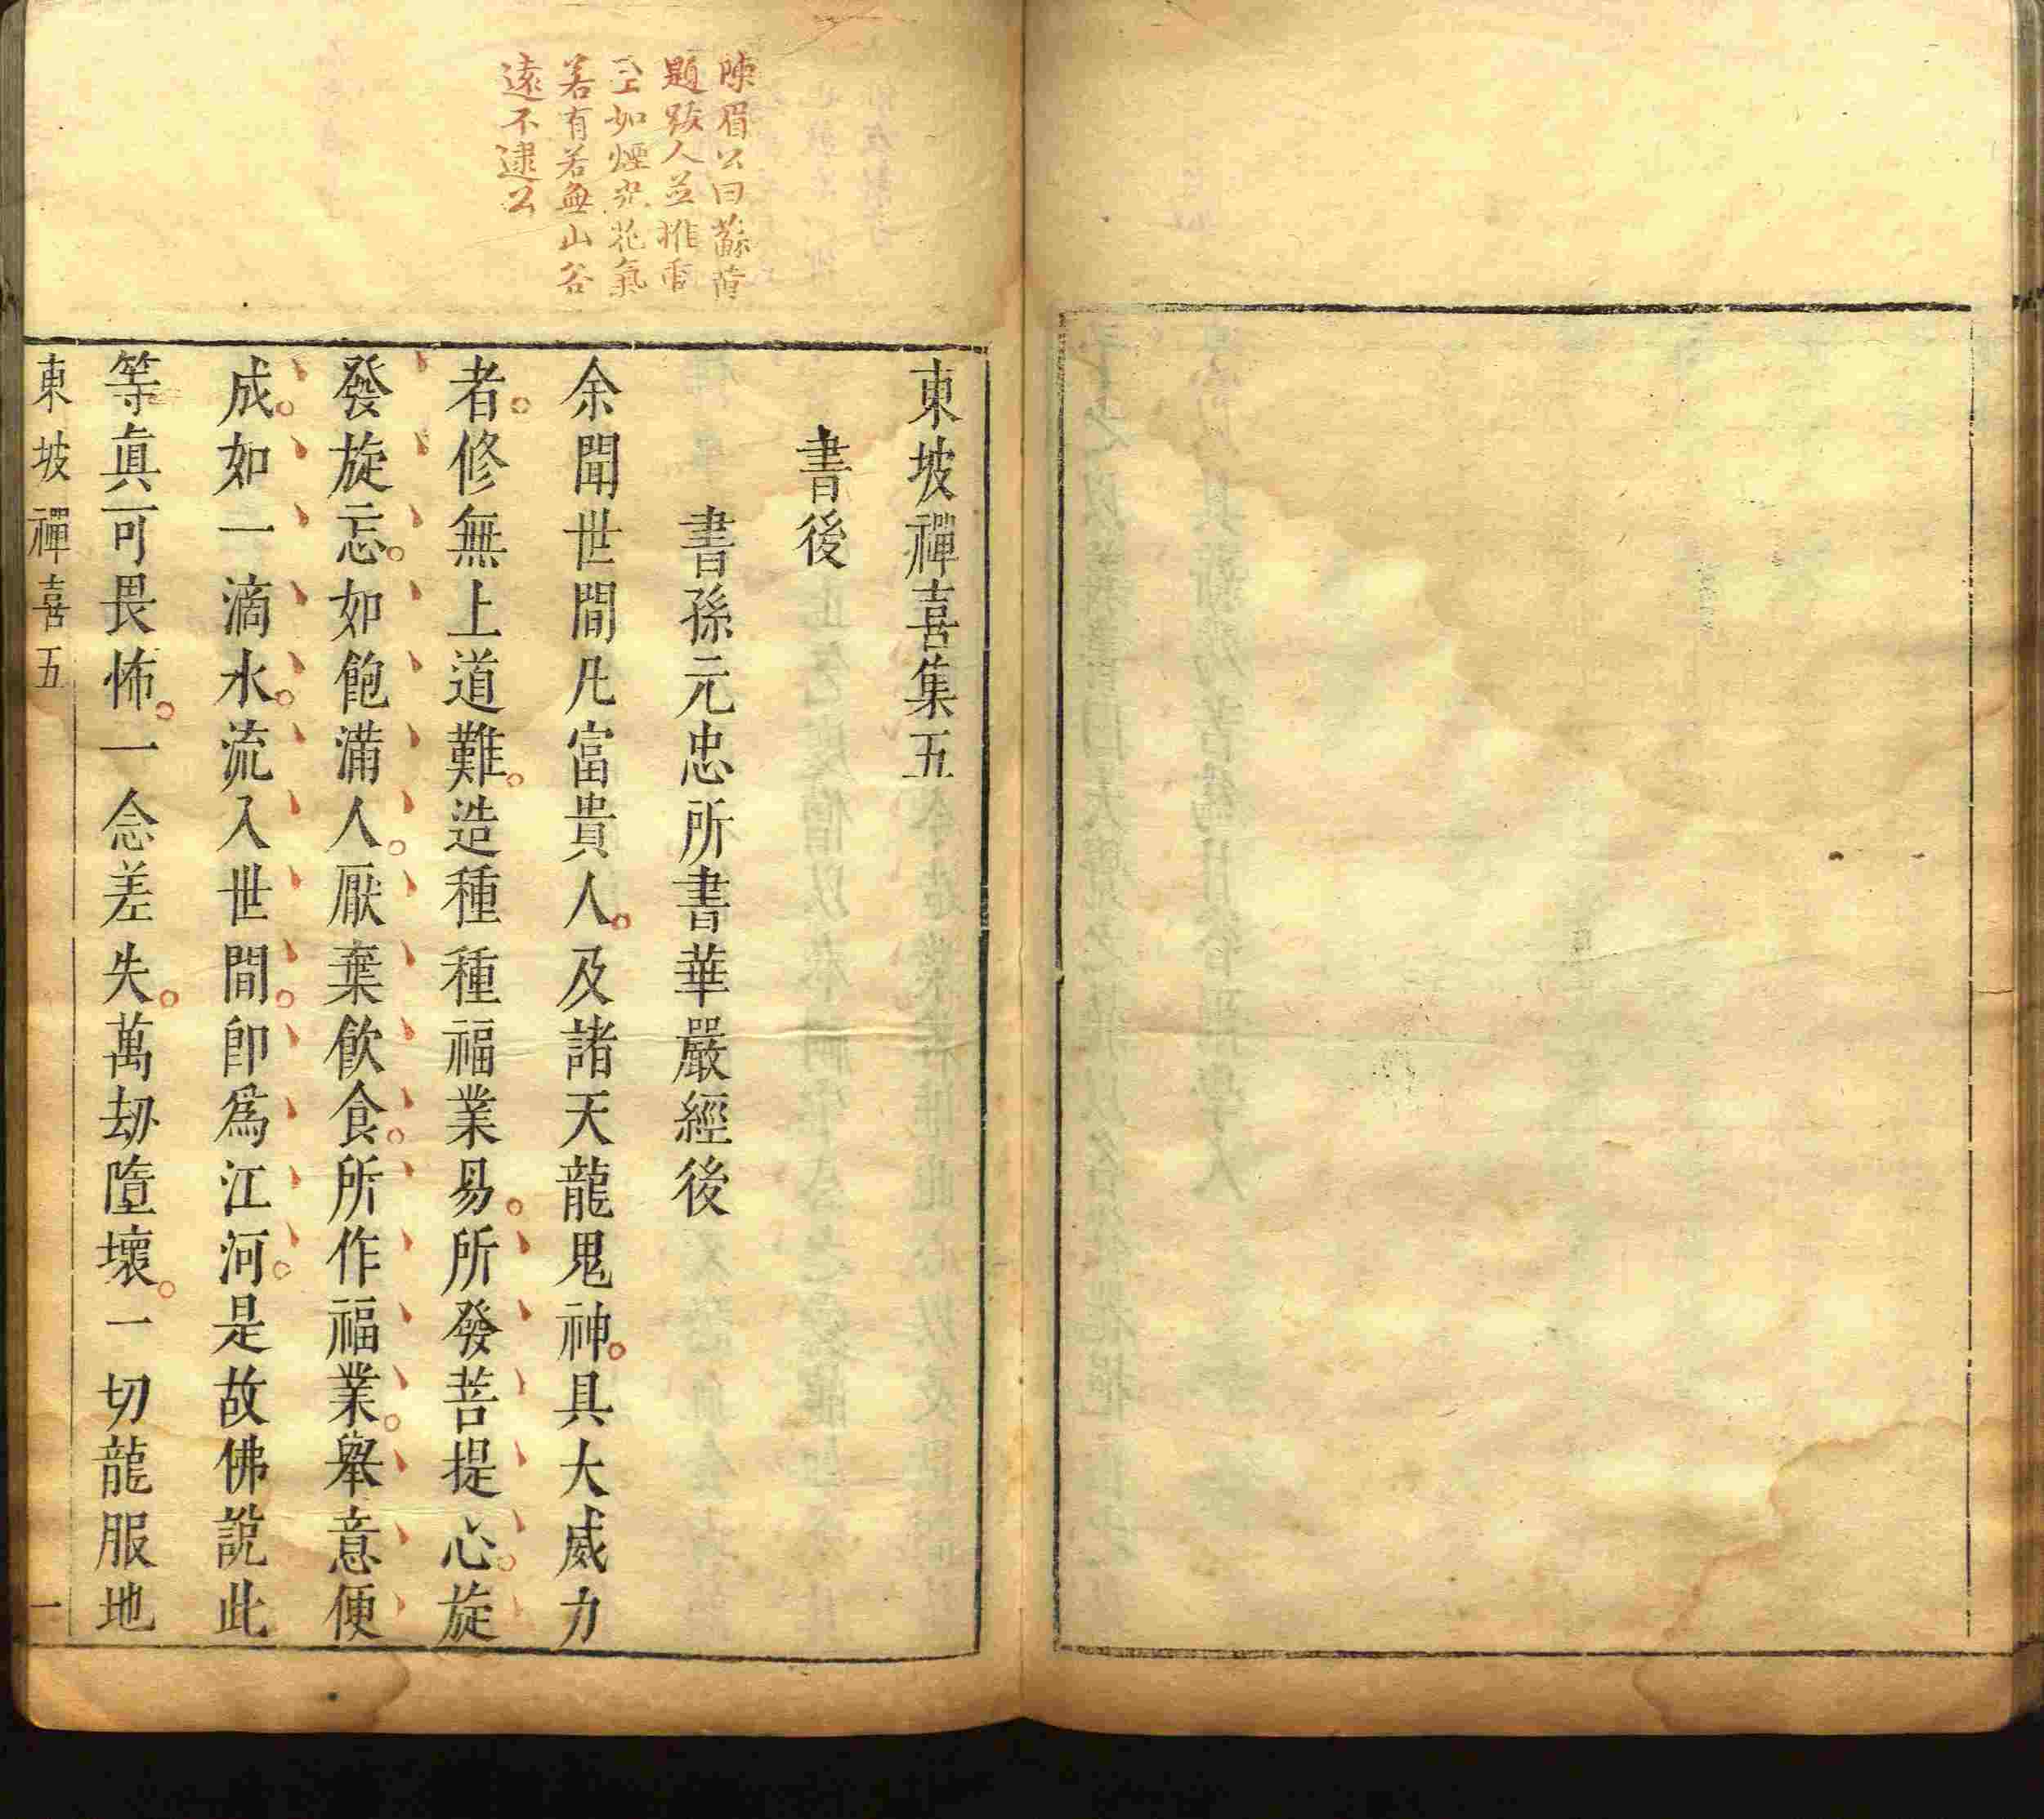 陳眉公曰蘇黃
題跋人並推重
公如煙光花氣
若有若無山谷
遠不逮公
東坡禪喜集五
書後
書孫元忠所書華嚴經後
余聞世間凡富貴人。及諸天龍鬼神。具大威力
者。修無上道難。造種種福業易。所發菩提心。旋
發旋忘。如飽滿人。厭棄飲食。所作福業。舉意便
成。如一滴水。流入世間。卽爲江河。是故佛說此
等眞可畏怖。一念差失。萬劫墮壞。一切龍服地
東坡禪喜五
一